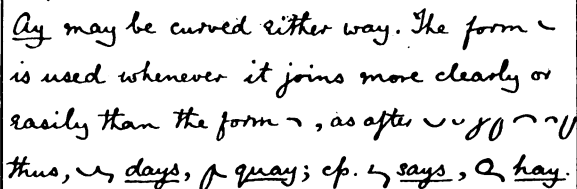 Ay may be curved either way. The form
is used whenever it joins more clearly or
easily than the form , as after
thus, days, quay; cp. says, hay.